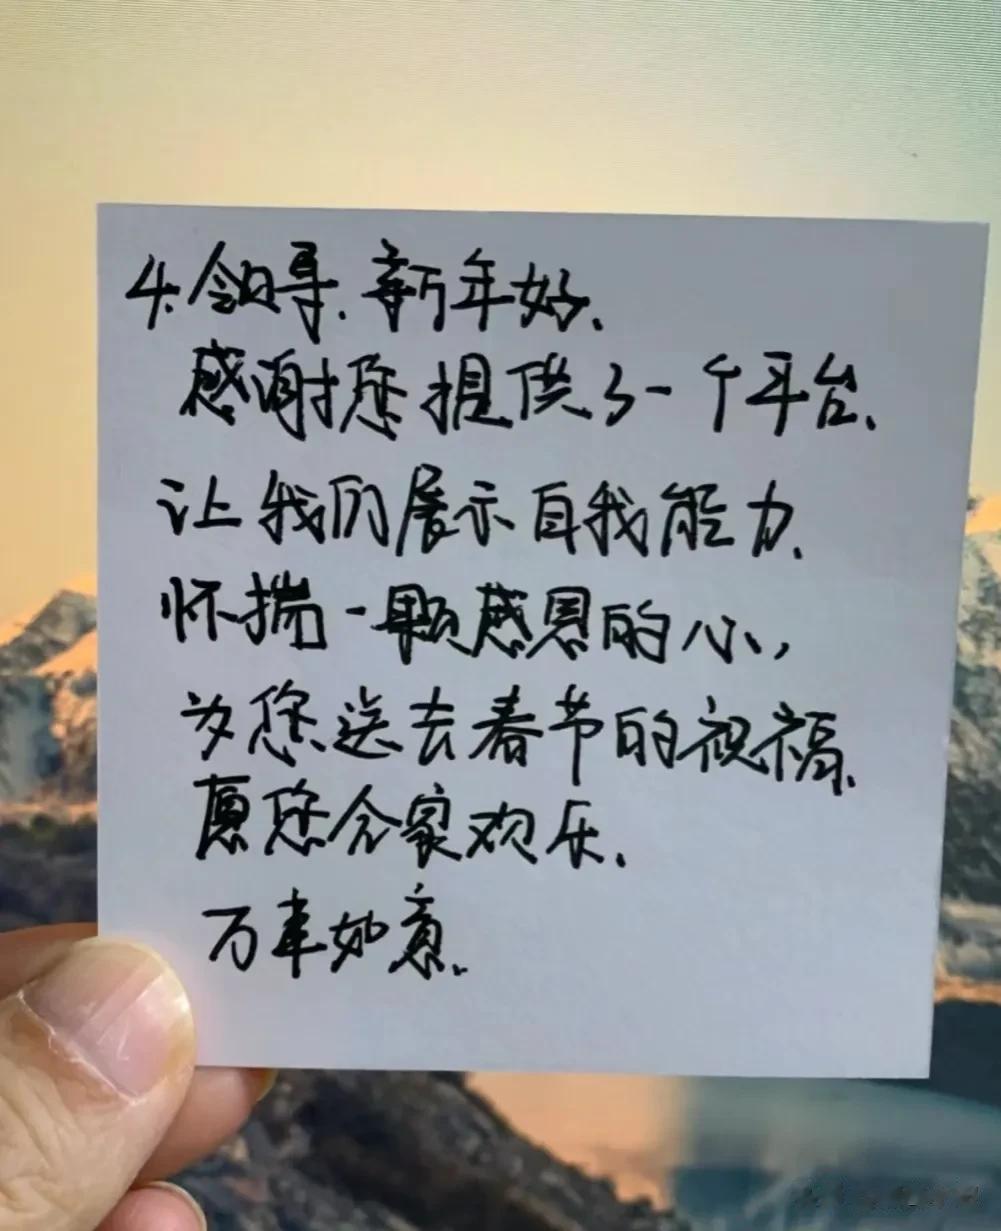 4.领导.新年好、
感谢您提供了一个平台、
让我们展示自我能力、
怀揣一颗感恩的心,
为您送去春节的祝福、
愿您合家欢乐、
万事如意、